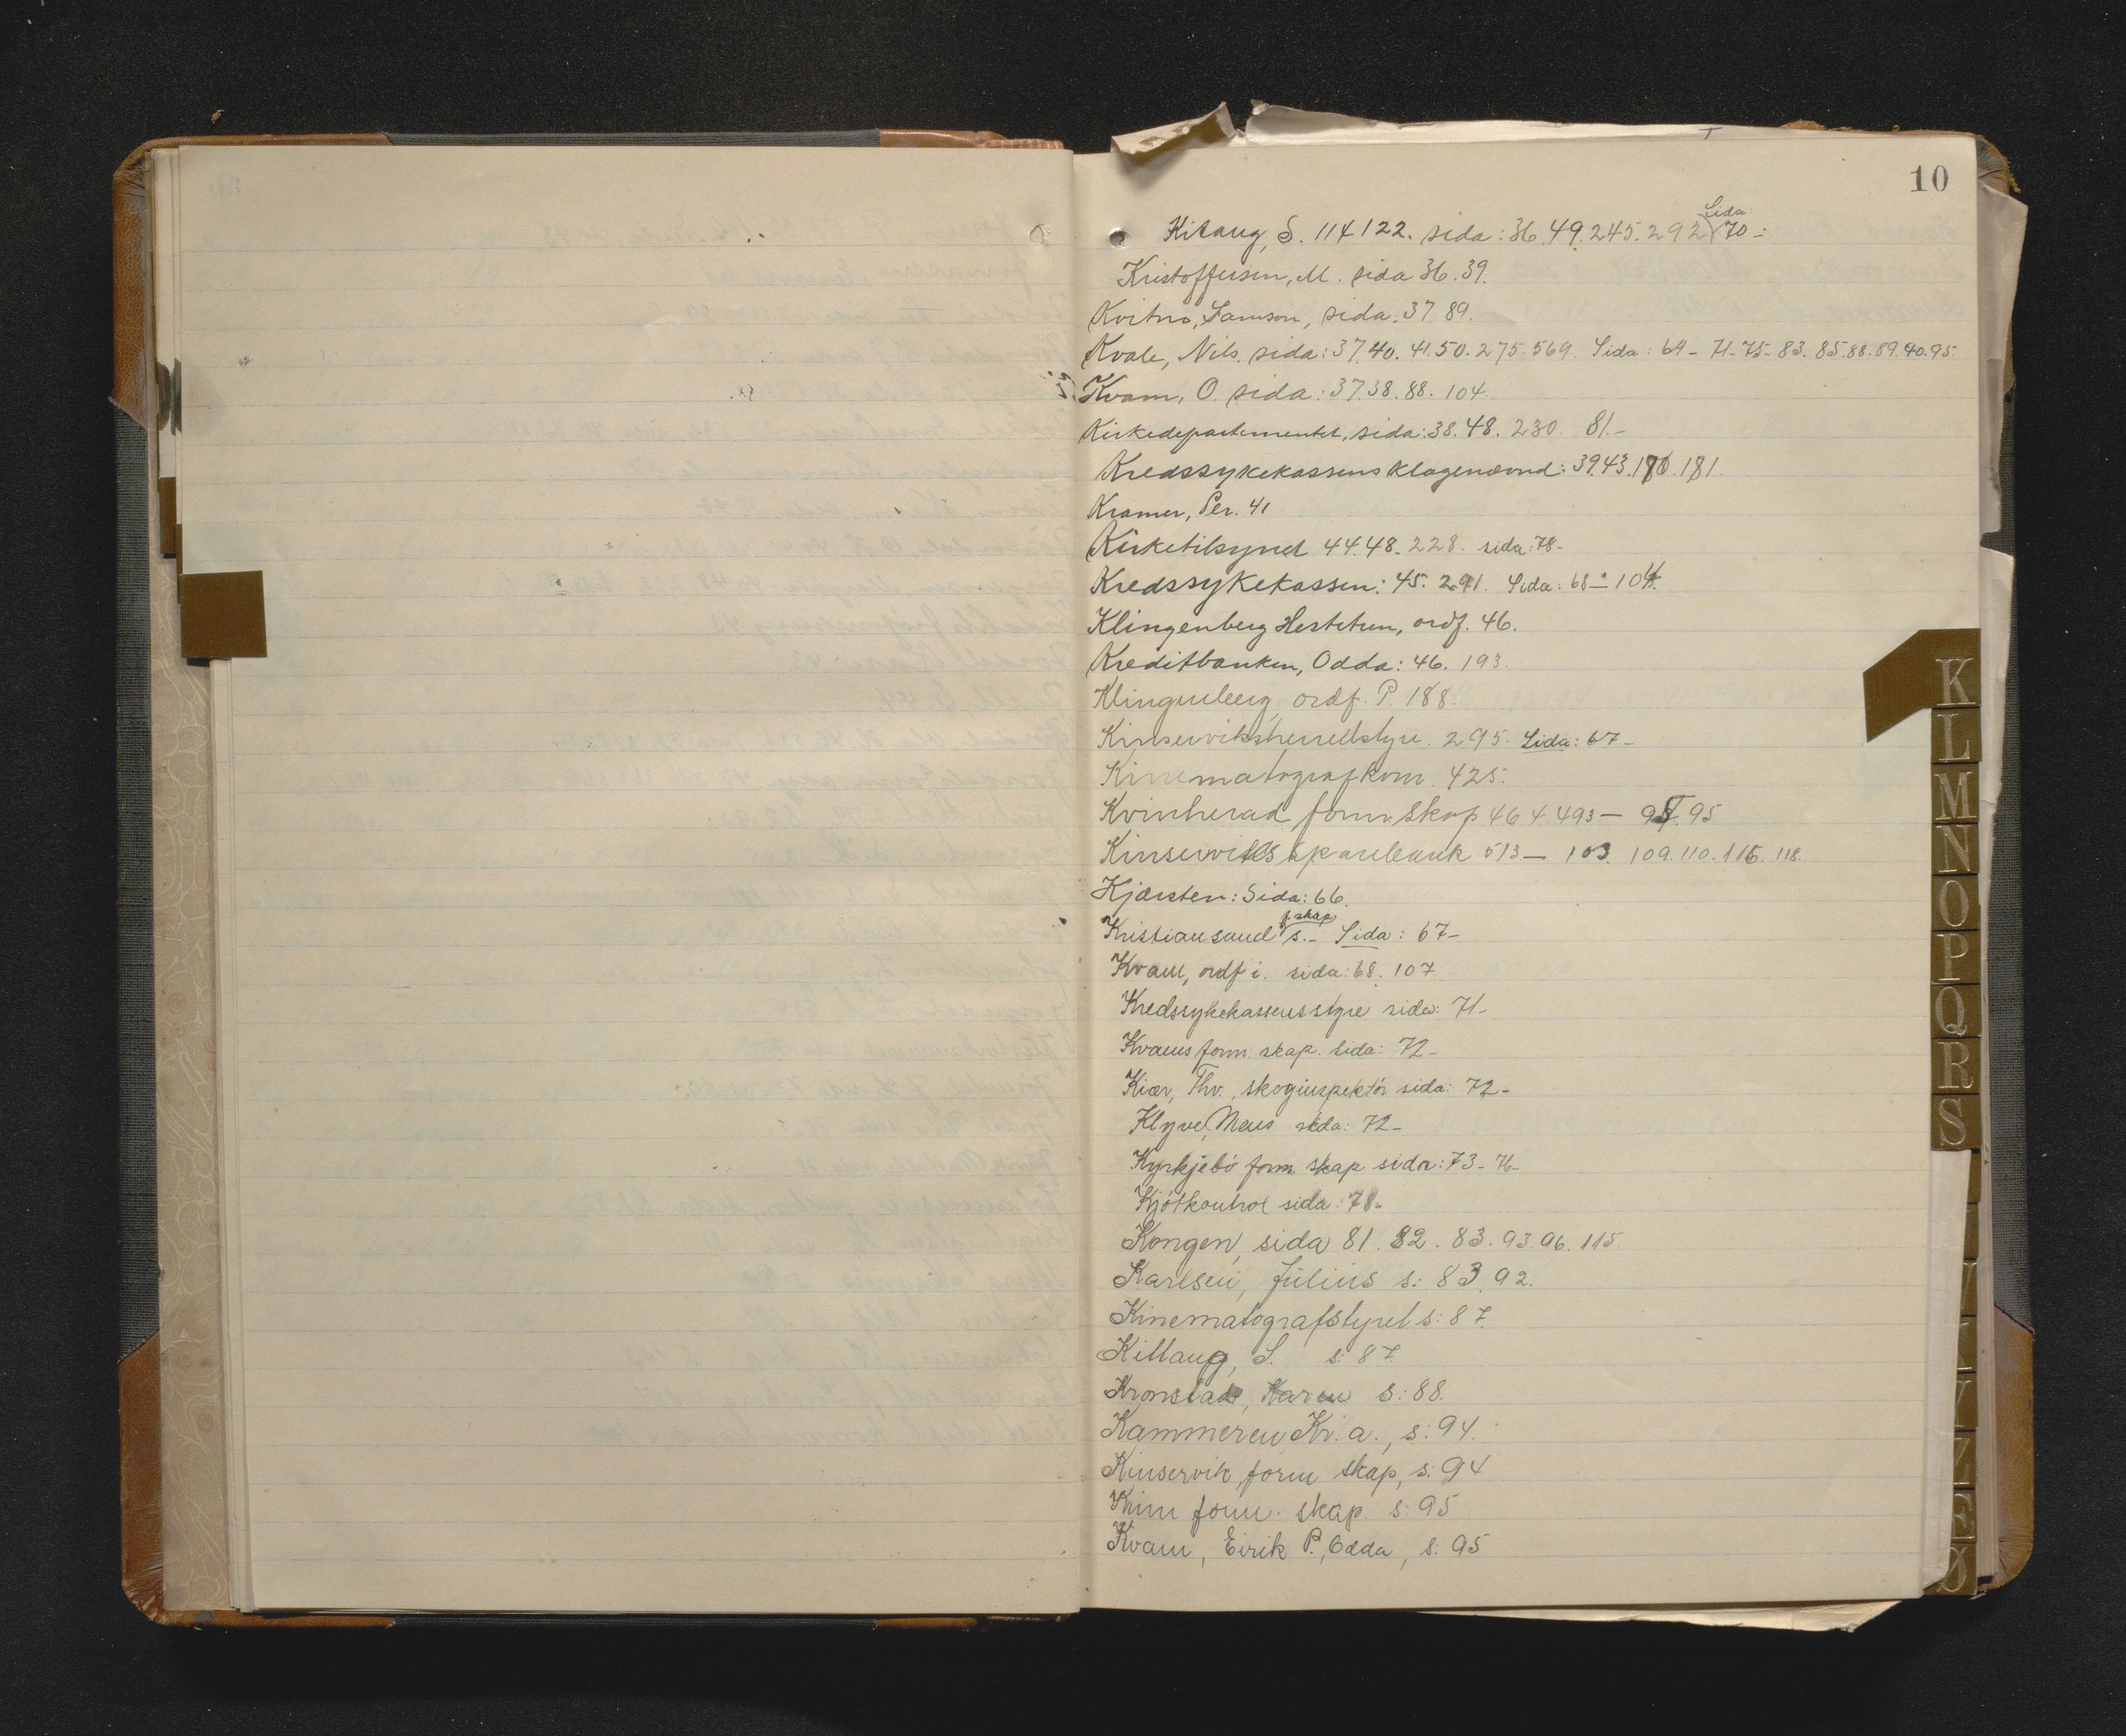 10
Kitaug, S. 114 122. sida: 36. 49. 245. 292 Sida: 70 -
Kristoffersen, M. sida 36. 39.
Kvitno, Samson, sida: 37. 89.
Kvale, Nils. sida: 37. 40. 41. 50. 275. 569. Sida: 64 - 71 - 75 - 83. 85. 88. 89. 90. 95.
Kvam, O. sida: 37. 38. 88. 104.
Kirkedepartementet, sida: 38. 48. 230. 81. -
Kredssykekassens klagenævnd: 39. 43. 181.
Kramer, Per. 41
Kirketilsynet 44. 48. 228. sida: 78 -
Kredssykekassen: 45. 291. Sida: 68 - 104.
Klingenberg Hestetun, ordf. 46.
Kreditbanken, Odda: 46. 193.
Klingenberg, ordf. P. 188.
Kinserviksherredstyre. 295. Sida: 67 -
Kinematografkom. 425.
Kvinherad form.skap 464. 493 - 95
Kinserviks sparebank 513 - 103. 109. 110. 116. 118.
Kjærsten: Sida: 66.
Kristiansand s. f.skap - Sida: 67 -
Kvam, ordf i. sida: 68. 107
Kredssykekassens styre sida: 71 -
Kvams form. skap. sida: 72 -
Kiær, Thv., skoginspektör sida: 72 -
Klyve, Mons sida: 72 -
Kyrkjebö form. skap sida: 73 - 76 -
Kjötkontrol sida: 78 -
Kongen, sida 81. 82. 83. 93. 96. 115
Karlsen, Julius s: 83. 92.
Kinematografstyret s: 87.
Killaug, S. s: 87.
Kronstad, Karen s: 88.
Kammeren, Kr.a., s: 94.
Kinservik form skap, s: 94
form. skap. s: 95
Kvam, Eirik P., Odda, s: 95
K
L
M
N
O
P
Q
R
S
V
Z
Æ
Ø